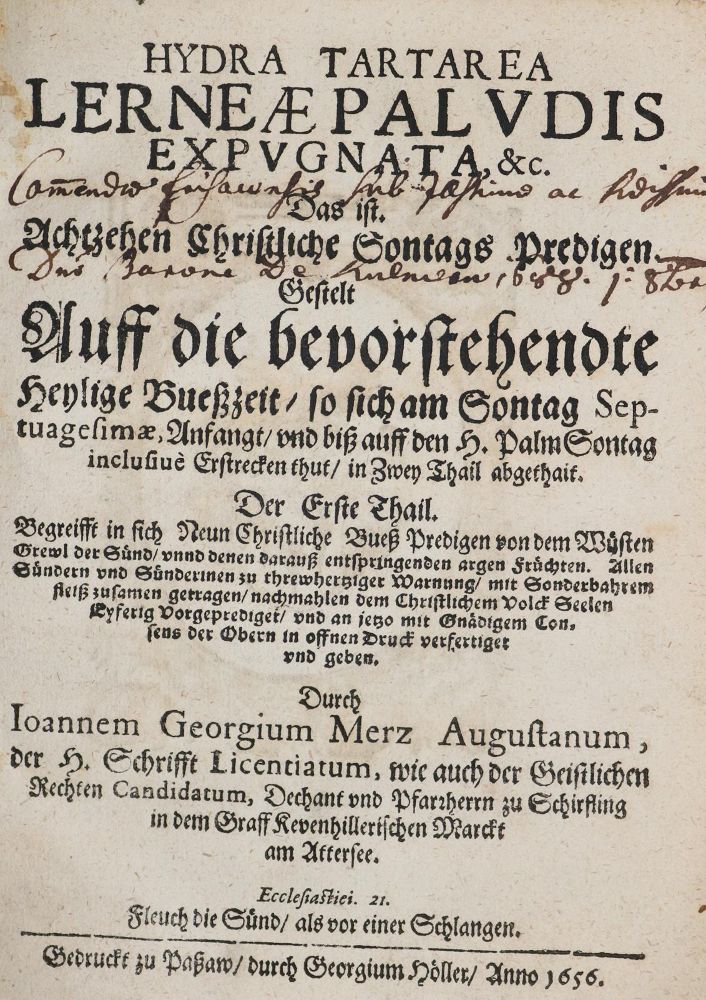 HYDRA TARTAREA
LERNEÆ PALVDIS
EXPVGNATA, &c.
Das ist.
Achtzehen Christliche Sontags Predigen.
Gestelt
Auff die bevorstehendte
Heylige Bueßzeit / so sich am Sontag Sep-
tuagesimæ, Anfangt / vnd biß auff den H. PalmSontag
inclusiuè Erstrecken thut / in Zwey Thail abgethait.
Der Erste Thail.
Begreifft in sich Neun Christliche Bueß Predigen von dem Wüsten
Grewl der Sünd / vnnd denen darauß entspringenden argen Früchten. Allen
Sündern vnd Sünderinen zu threwhertziger Warnung / mit Sonderbahrem
fleiß zusamen getragen / nachmahlen dem Christlichem Volck Seelen
Eyferig Vorgeprediget / vnd an jetzo mit Gnädigem Con-
sens der Obern in offnen Druck verfertiget
vnd geben.
Durch
Ioannem Georgium Merz Augustanum,
der H. Schrifft Licentiatum, wie auch der Geistlichen
Rechten Candidatum, Dechant vnd Pfarrherrn zu Schirfling
in dem Graff Kevenhillerischen Marckt
am Attersee.
Ecclesiastici. 21.
Fleuch die Sünd / als vor einer Schlangen.
Gedruckt zu Paßaw / durch Georgium Höller / Anno 1656.